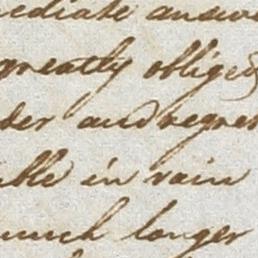 mediate answ
greatly obliged
der and regre
able in vain
much longer